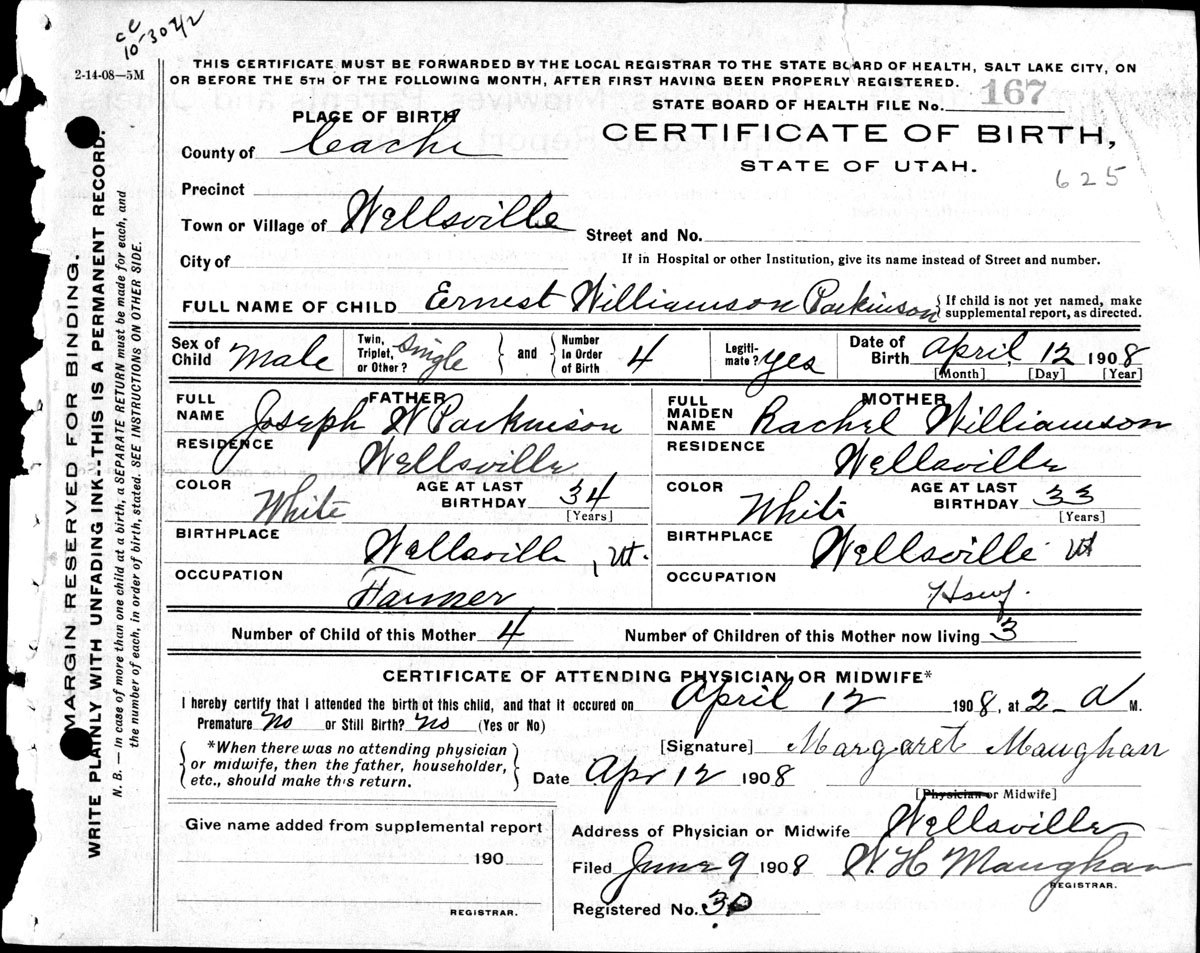 ce
10-30-42
2-14-08—5M
THIS CERTIFICATE MUST BE FORWARDED BY THE LOCAL REGISTRAR TO THE STATE BOARD OF HEALTH, SALT LAKE CITY, ON
OR BEFORE THE 5TH OF THE FOLLOWING MONTH, AFTER FIRST HAVING BEEN PROPERLY REGISTERED.
STATE BOARD OF HEALTH FILE No. 167
PLACE OF BIRTH
CERTIFICATE OF BIRTH,
County of Cache
STATE OF UTAH.
625
Precinct
Town or Village of Wellsville
Street and No.
City of
If in Hospital or other Institution, give its name instead of Street and number.
FULL NAME OF CHILD Ernest Williamson Parkinson { If child is not yet named, make
supplemental report, as directed.
Sex of Child Male
Twin, Triplet, or Other? Single } and { Number In Order of Birth 4
Legiti-mate? yes
Date of Birth April, 12 1908
[Month] [Day] [Year]
FATHER
FULL NAME Joseph W Parkinson
RESIDENCE Wellsville
COLOR White
AGE AT LAST BIRTHDAY 34
[Years]
BIRTHPLACE Wellsville, Ut.
OCCUPATION Farmer
MOTHER
FULL MAIDEN NAME Rachel Williamson
RESIDENCE Wellsville
COLOR White
AGE AT LAST BIRTHDAY 33
[Years]
BIRTHPLACE Wellsville Ut
OCCUPATION Hswf.
Number of Child of this Mother 4 Number of Children of this Mother now living 3
CERTIFICATE OF ATTENDING PHYSICIAN OR MIDWIFE*
I hereby certify that I attended the birth of this child, and that it occured on April 12 1908, at 2 - A M.
Premature No or Still Birth? No (Yes or No)
{ *When there was no attending physician
or midwife, then the father, householder,
etc., should make this return. }
[Signature] Margaret Maughan
Date Apr 12 1908
[Physician or Midwife]
Give name added from supplemental report
190
REGISTRAR.
Address of Physician or Midwife Wellsville
Filed June 9 1908 W. H Maughan
REGISTRAR.
Registered No. 30
MARGIN RESERVED FOR BINDING.
WRITE PLAINLY WITH UNFADING INK--THIS IS A PERMANENT RECORD.
N. B. — In case of more than one child at a birth, a SEPARATE RETURN must be made for each, and
the number of each, in order of birth, stated. SEE INSTRUCTIONS ON OTHER SIDE.